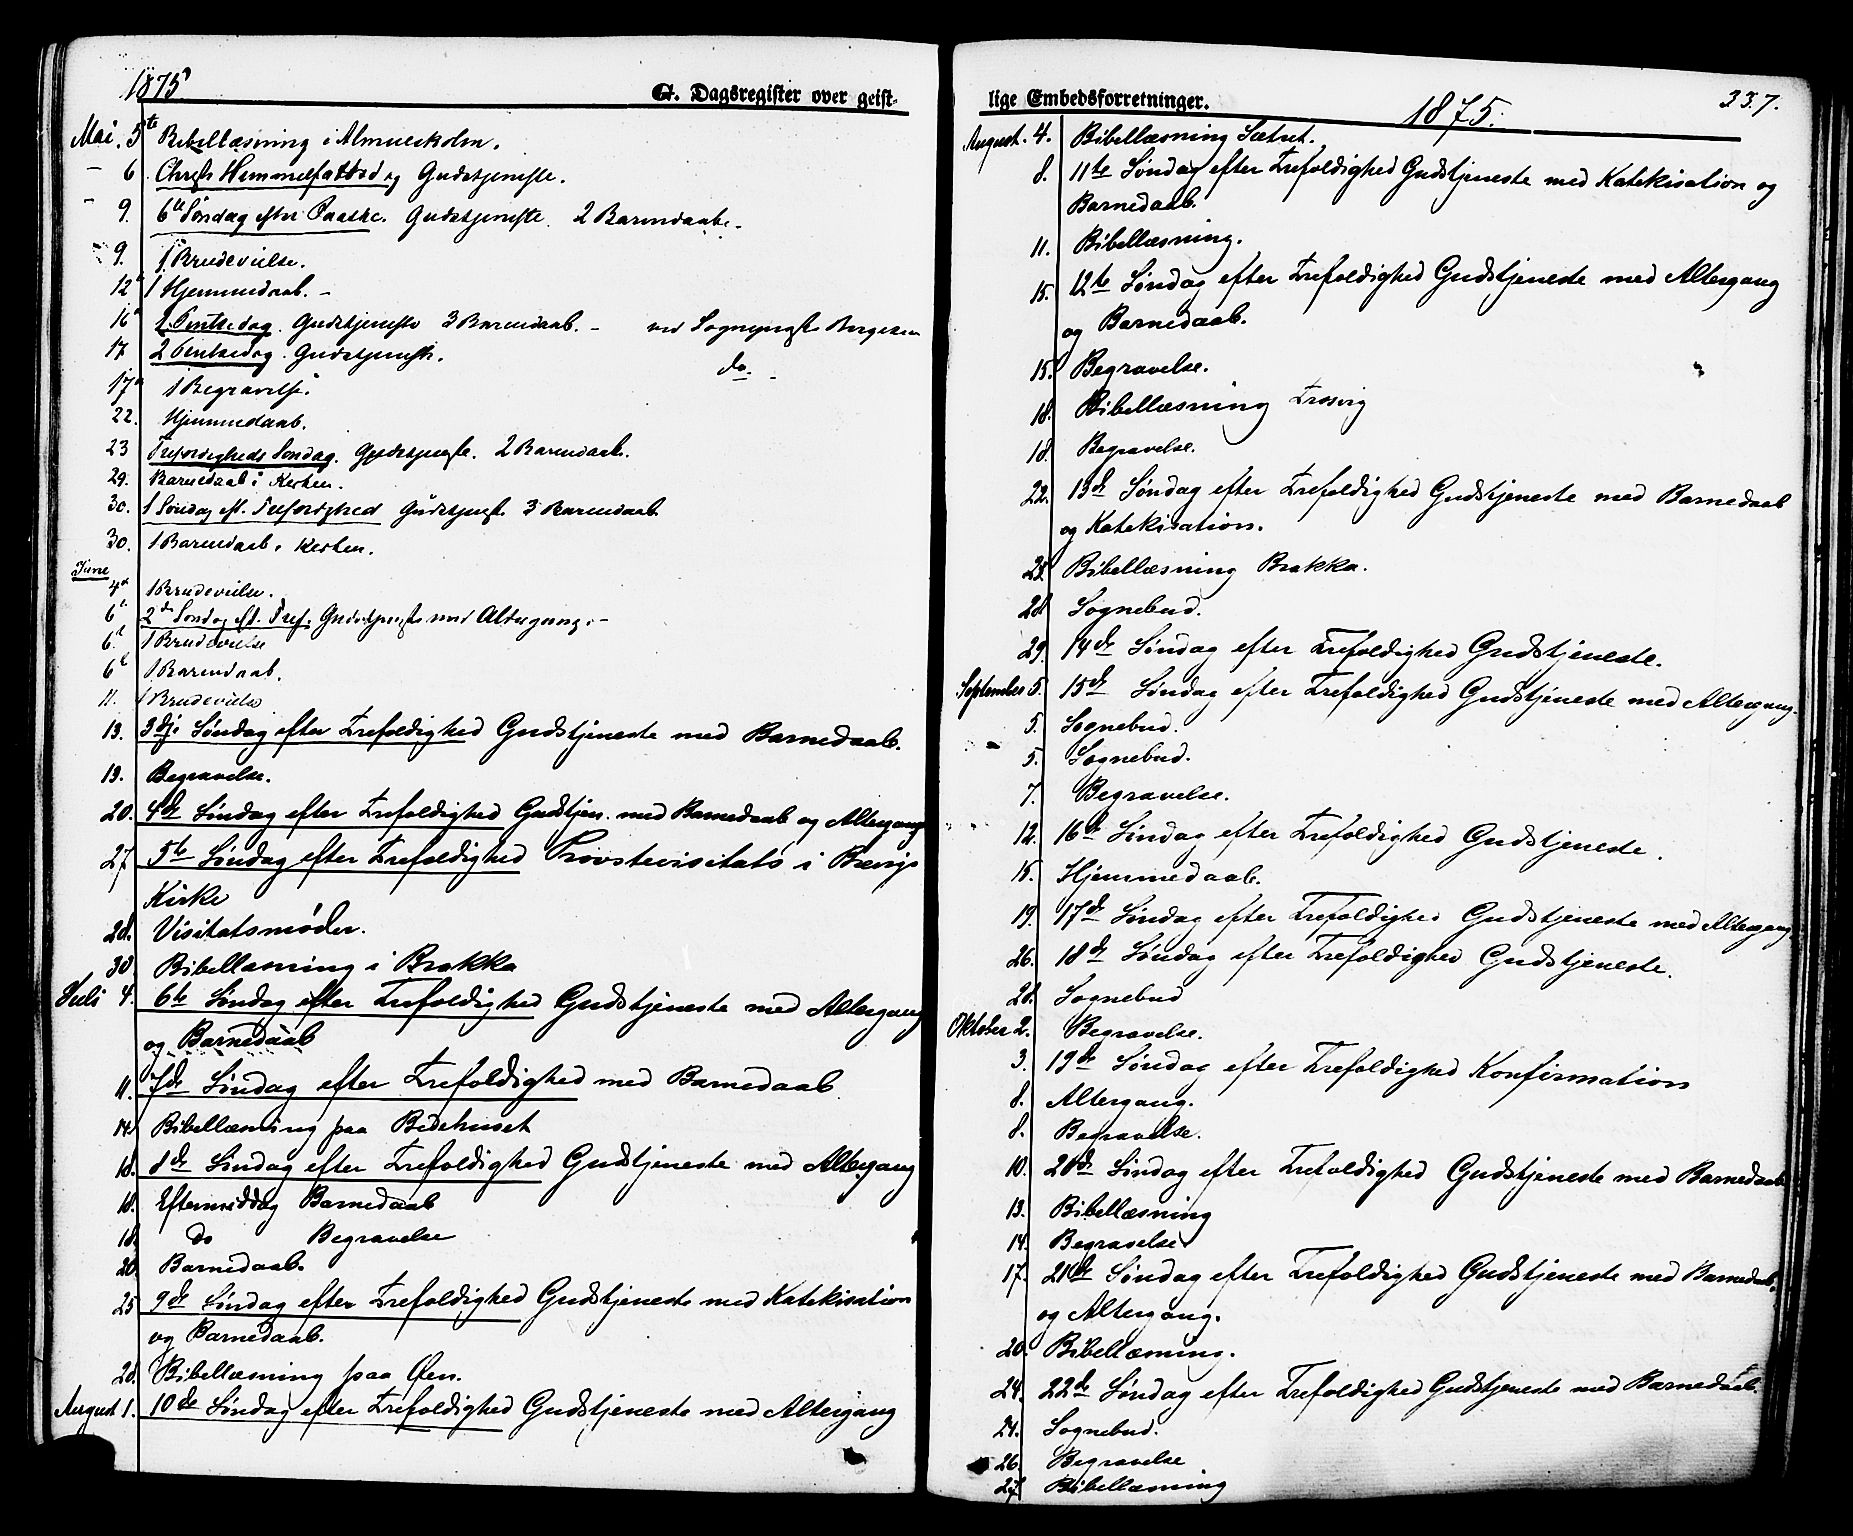 1875
G. Dagsregister over geist-
Mai. 5te Bibellæsning i Almueskolen.
— 6 Christi Himmelfartsdag Gudstjeneste.
— 9. 6te Søndag efter Paaske. Gudstjeneste. 2 Barnedaab.
9. 1 Brudevielse.
12 1 Hjemmedaab.
16 Pintsedag. Gudstjeneste 3 Barnedaab. — ved Sogneprest
17 2 Pintsedag. Gudstjeneste. do.
17 1 Begravelse.
22. Hjemmedaab.
23 Trefoldigheds Søndag. Gudstjeneste. 2 Barnedaab.
29. Barnedaab i Kirken.
30. 1 Søndag eft. Trefoldighed Gudstjenest. 3 Barnedaab
30. 1 Barnedaab i Kirken.
June
4 1 Brudevielse.
6 2d Søndag eft. Tref. Gudstjeneste med Altergang.
6. 1 Brudevielse
6 1 Barnedaab.
11. 1 Brudevielse
13. 3dje Søndag efter Trefoldighed Gudstjeneste med Barnedaab.
13. Begravelse.
20. 4de Søndag efter Trefoldighed Gudstjen. med Barnedaab og Altergang
27. 5te Søndag efter Trefoldighed Provstevisitats i Brevigs
Kirke
28. Visitatsmøder.
30 Bibellæsning i Brakka
Juli 4. 6te Søndag efter Trefoldighed Gudstjeneste med Altergang
og Barnedaab
11. 7de Søndag efter Trefoldighed med Barnedaab
14. Bibellæsning paa Bedehuset
18. 8de Søndag efter Trefoldighed Gudstjeneste med Altergang
18. Eftermiddag Barnedaab
18. do Begravelse
20. Barnedaab.
25 9de Søndag efter Trefoldighed Gudstjeneste med Katekisation
og Barnedaab.
28. Bibellæsning paa Øen.
August 1. 10de Søndag efter Trefoldighed Gudstjeneste med Altergang
lige Embedsforretninger.
1875.
337.
August. 4. Bibellæsning Sætret.
8. 11te Søndag efter Trefoldighed Gudstjeneste med Katekisation og
Barnedaab.
11. Bibellæsning.
15. 12te Søndag efter Trefoldighed Gudstjeneste med Altergang
og Barnedaab.
15. Begravelse.
18. Bibellæsning Trosvig
18. Begravelse.
22. 13de Søndag efter Trefoldighed Gudstjeneste med Barnedaab
og Katekisation.
25. Bibellæsning Brakka.
28 Sognebud.
29. 14de Søndag efter Trefoldighed Gudstjeneste.
September 5. 15de Søndag efter Trefoldighed Gudstjeneste med Altergang.
5. Sognebud.
5. Sognebud.
7. Begravelse.
12. 16de Søndag efter Trefoldighed Gudstjeneste.
15. Hjemmedaab.
19. 17de Søndag efter Trefoldighed Gudstjeneste med Altergang
26. 18de Søndag efter Trefoldighed Gudstjeneste.
28. Sognebud
Oktober 2. Begravelse.
3. 19de Søndag efter Trefoldighed Konfirmation
8. Altergang.
8. Begravelse.
10. 20de Søndag efter Trefoldighed Gudstjeneste med Barnedaab
13. Bibellæsning
14. Begravelse
17. 21de Søndag efter Trefoldighed Gudstjeneste med Barnedaab.
og Altergang.
20. Bibellæsning.
24. 22de Søndag efter Trefoldighed Gudstjeneste med Barnedaab.
24. Sognebud.
26. Begravelse
27. Bibellæsning